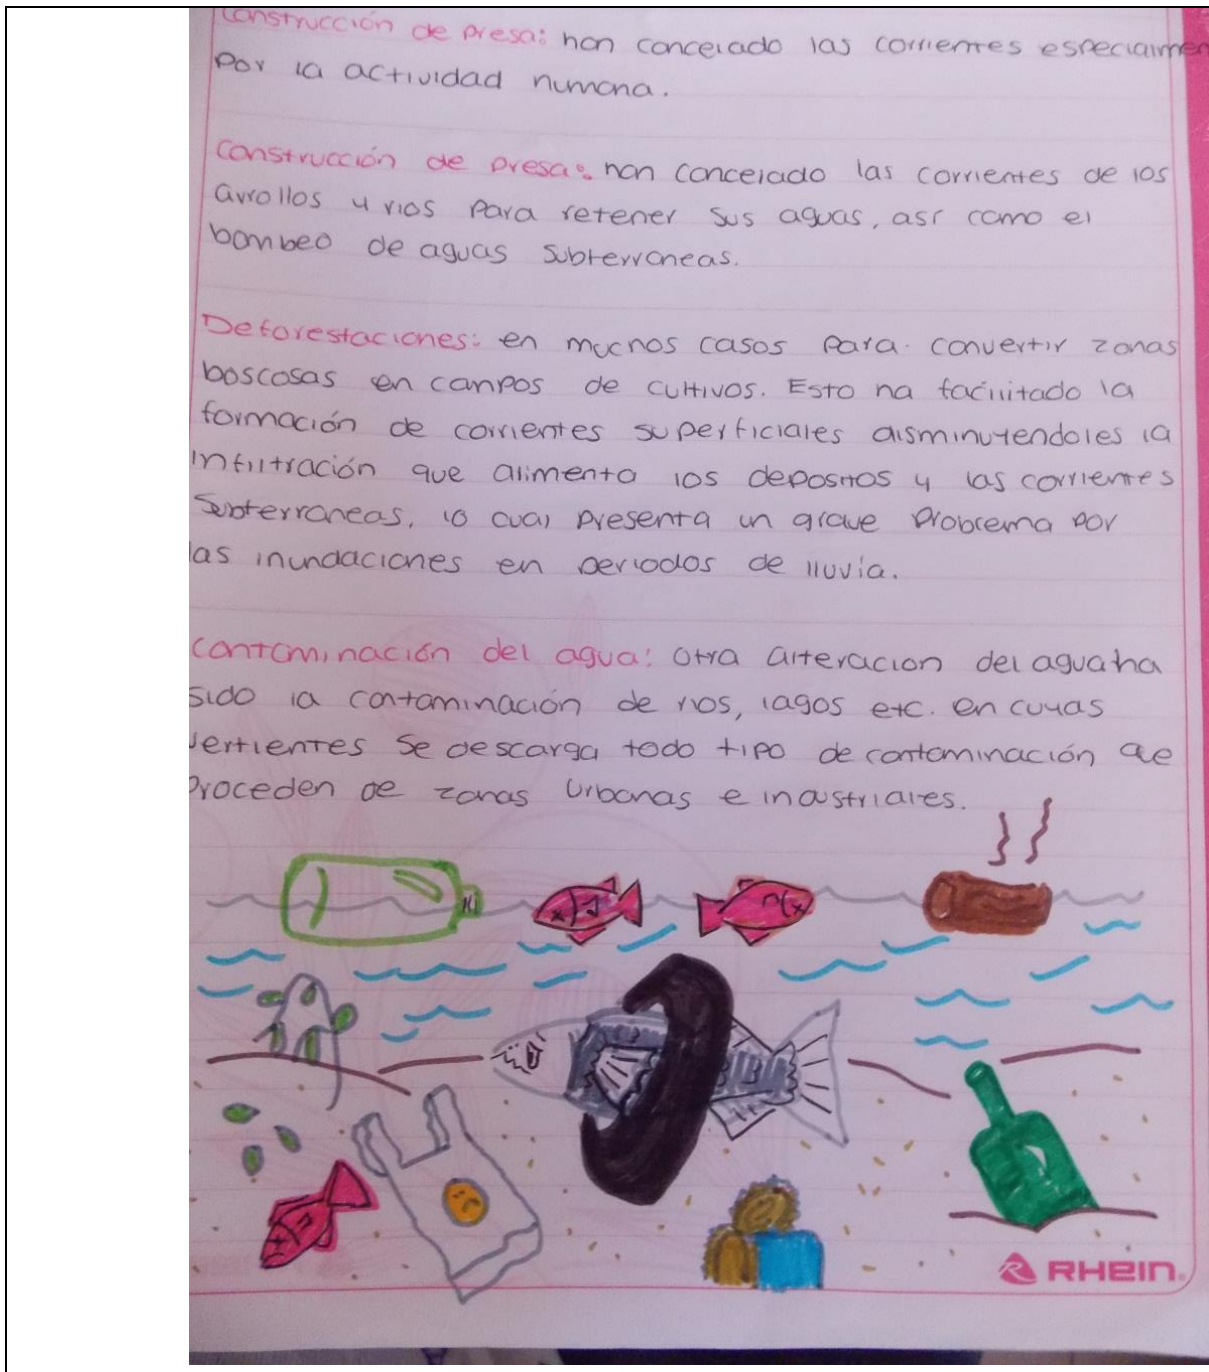 Construcción de presa: han concelado las corrientes especialmen
por la actividad humana.
Construcción de presa: han concelado las corrientes de los
arrollos y rios para retener sus aguas, asi como el
bombeo de aguas subterraneas.
Deforestaciones: en muchos casos para convertir zonas
boscosas en campos de cultivos. Esto ha facilitado la
formación de corrientes superficiales disminuyendoles la
infiltración que alimenta los depositos y las corrientes
subterraneas, lo cual presenta un grave problema por
las inundaciones en periodos de lluvia.
Contaminación del agua: Otra alteracion del agua ha
sido la contaminación de rios, lagos etc. en cuyas
vertientes se descarga todo tipo de contaminación que
proceden de zonas urbanas e industriales.
RHEIN